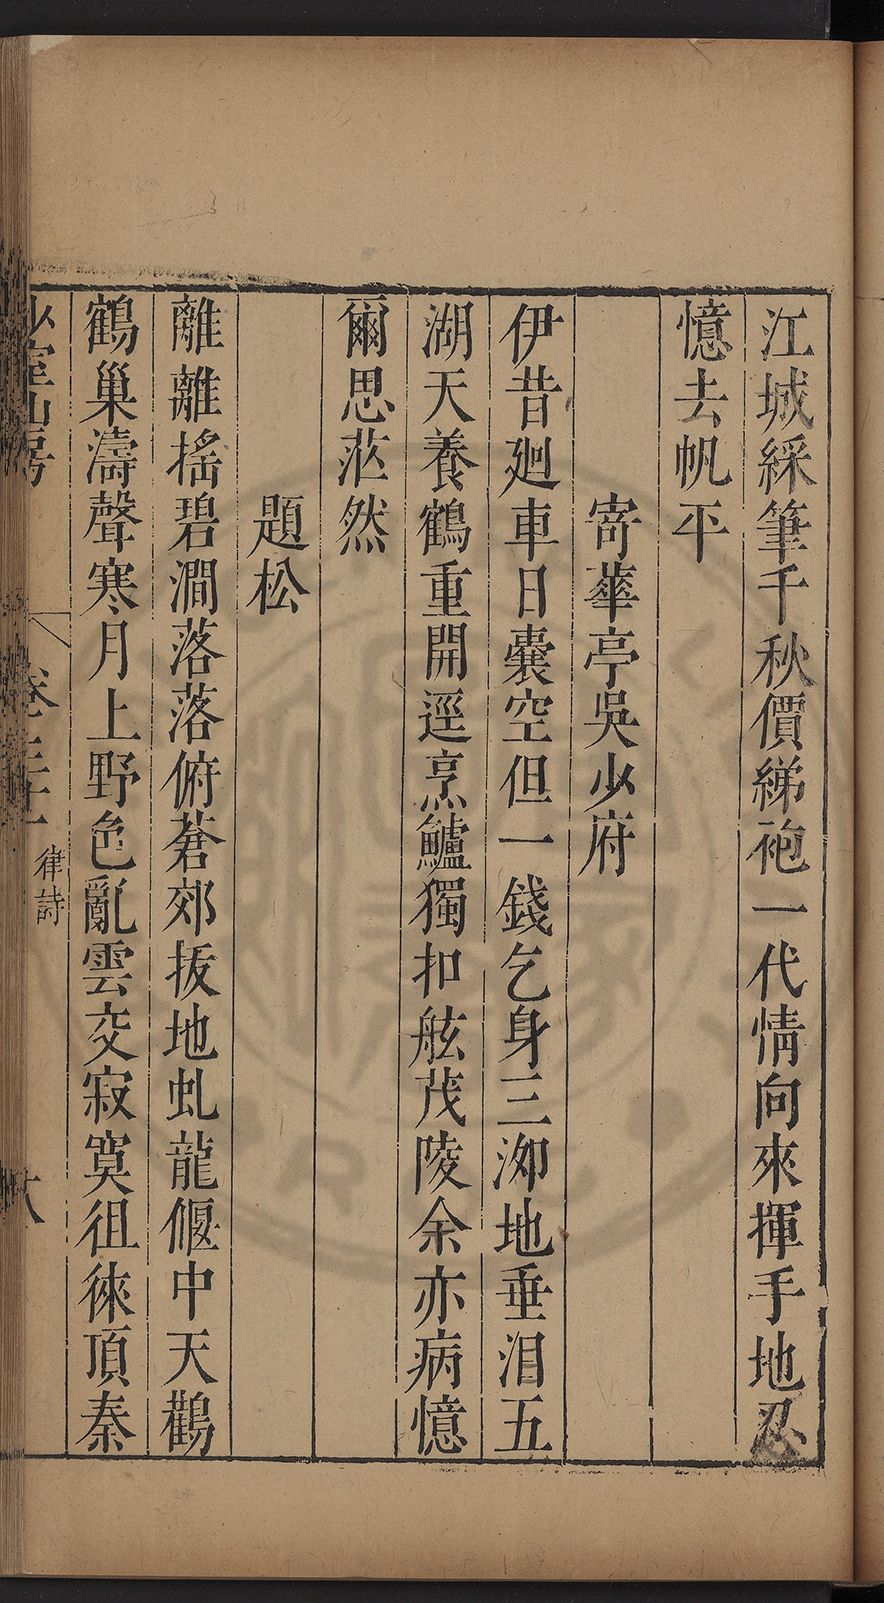 江城綵筆千秋價綈袍一代情向來揮手地忍
憶去帆平
寄華亭吳少府
伊昔廻車日囊空但一錢乞身三泖地垂泪五
湖天養鶴重開逕烹鱸獨扣舷茂陵余亦病憶
爾思茫然
題松
離離搖碧澗落落俯蒼郊拔地虬龍偃中天鸛
鶴巢濤聲寒月上野色亂雲交寂寞徂徠頂秦
少室山房
律詩